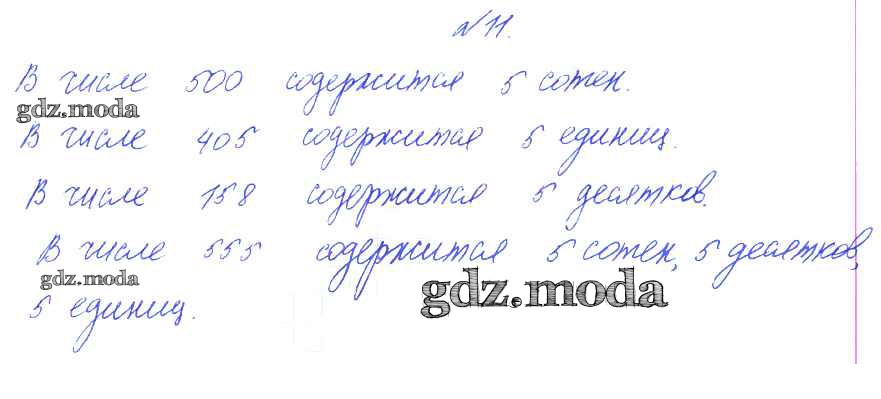 № 11.
В числе 500 содержится 5 сотен.
gdz.moda
В числе 405 содержится 5 единиц.
В числе 158 содержится 5 десятков.
В числе 555 содержится 5 сотен, 5 десятков,
gdz.moda
gdz.moda
5 единиц.